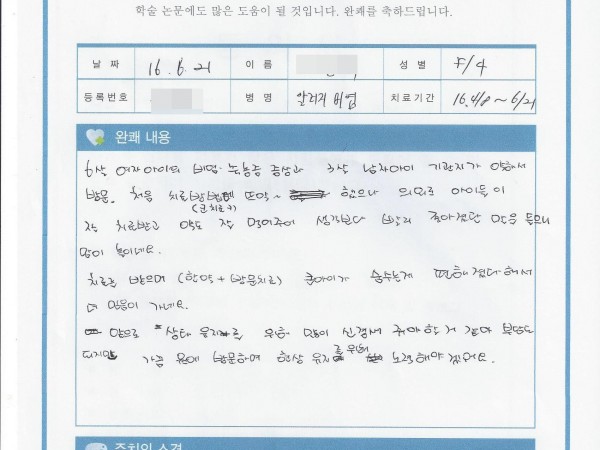 학술 논문에도 많은 도움이 될 것입니다. 완쾌를 축하드립니다.
날 짜 16. 6. 21 이 름 성 별 F/4
등록번호 병 명 알러지 비염 치료기간 16. 4/8 ~ 6/21
완쾌 내용
6살 여자아이의 비염·축농증 증상과 3살 남자아이 기관지가 약해서
방문. 처음 치료방법에 ~ 했으나 의외로 아이들이
(코치료기)
잘 치료받고 약도 잘 먹어주어 생각보다 빨리 좋아졌단 말을 들으니
많이 놓이네요.
치료를 받으며 (한약 + 방문치료) 큰아이가 숨쉬는게 편해졌다 해서
더 믿음이 가네요.
앞으로 상태 유지를 위해 많이 신경써 줘야 할 거 같아 부담도
되지만 가끔 원에 방문하여 현상 유지를 위해 노력해야 겠어요.
주치의 소견